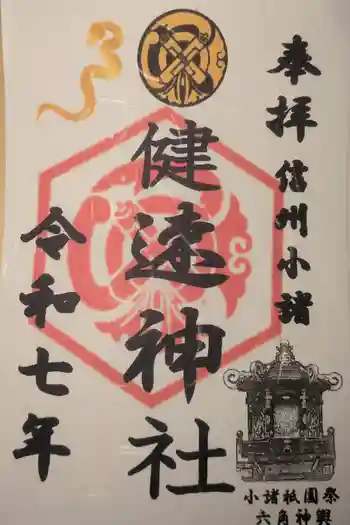 奉拝
信州小諸
健速神社
令和七年
小諸祇園祭
六角神輿